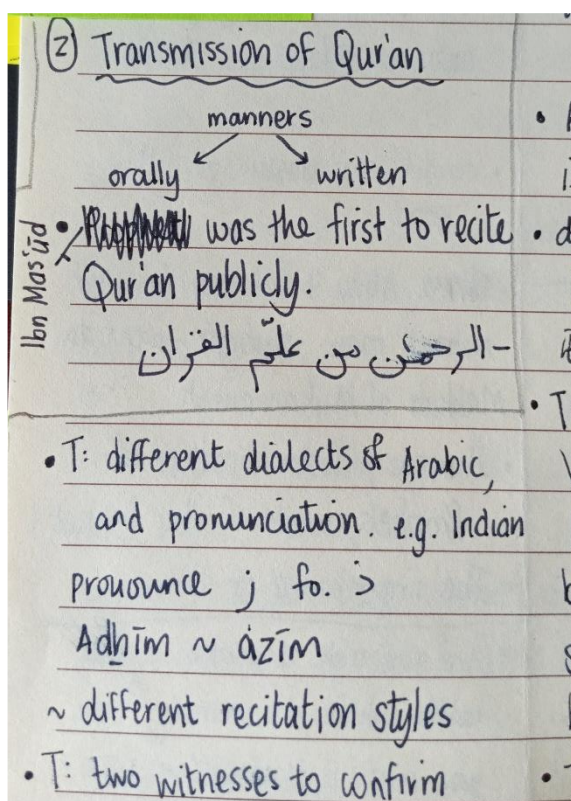 ② Transmission of Qur'an
manners
orally written
Ibn Mas'ūd
• was the first to recite
Qur'an publicly.
- الرحمٰن من علّم القران
• T: different dialects of Arabic,
and pronunciation. e.g. Indian
prouounce ز fo. ذ
Adhīm ~ ázīm
~ different recitation styles
• T: two witnesses to confirm